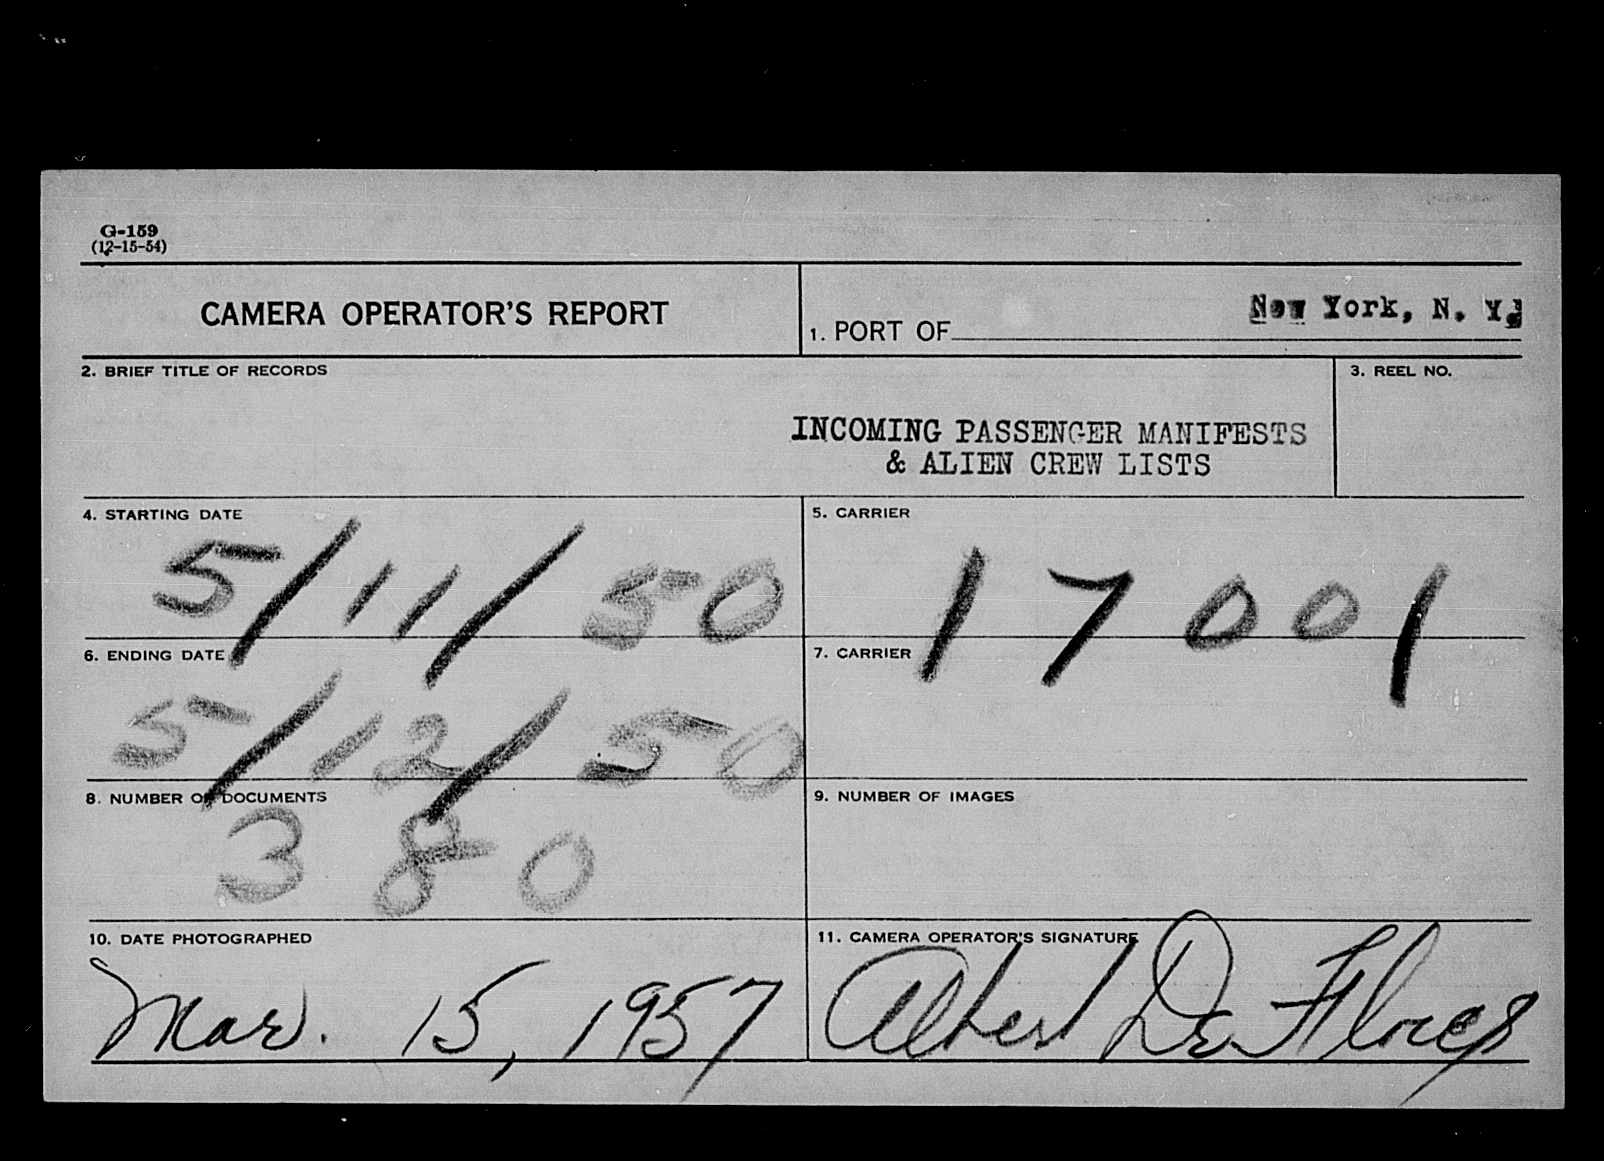 G-159
(12-15-54)
CAMERA OPERATOR'S REPORT
1. PORT OF New York, N. Y.
2. BRIEF TITLE OF RECORDS
INCOMING PASSENGER MANIFESTS
& ALIEN CREW LISTS
3. REEL NO.
4. STARTING DATE
5/11/50
5. CARRIER
17001
6. ENDING DATE
5/12/50
7. CARRIER
8. NUMBER OF DOCUMENTS
380
9. NUMBER OF IMAGES
10. DATE PHOTOGRAPHED
Mar. 15, 1957
11. CAMERA OPERATOR'S SIGNATURE
Albert De Flores